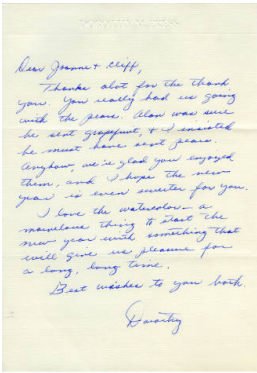 Dear Joanne & Cliff,
Thanks alot for the thank
you. You really had us going
with the pears. Alan was sure
he sent grapefruit, & I insisted
he must have sent pears.
Anyhow, we're glad you enjoyed
them, and I hope the new
year is even sweeter for you.
I love the watercolor – a
marvelous thing to start the
new year with something that
will give us pleasure for
a long, long time.
Best wishes to you both.
Dorothy